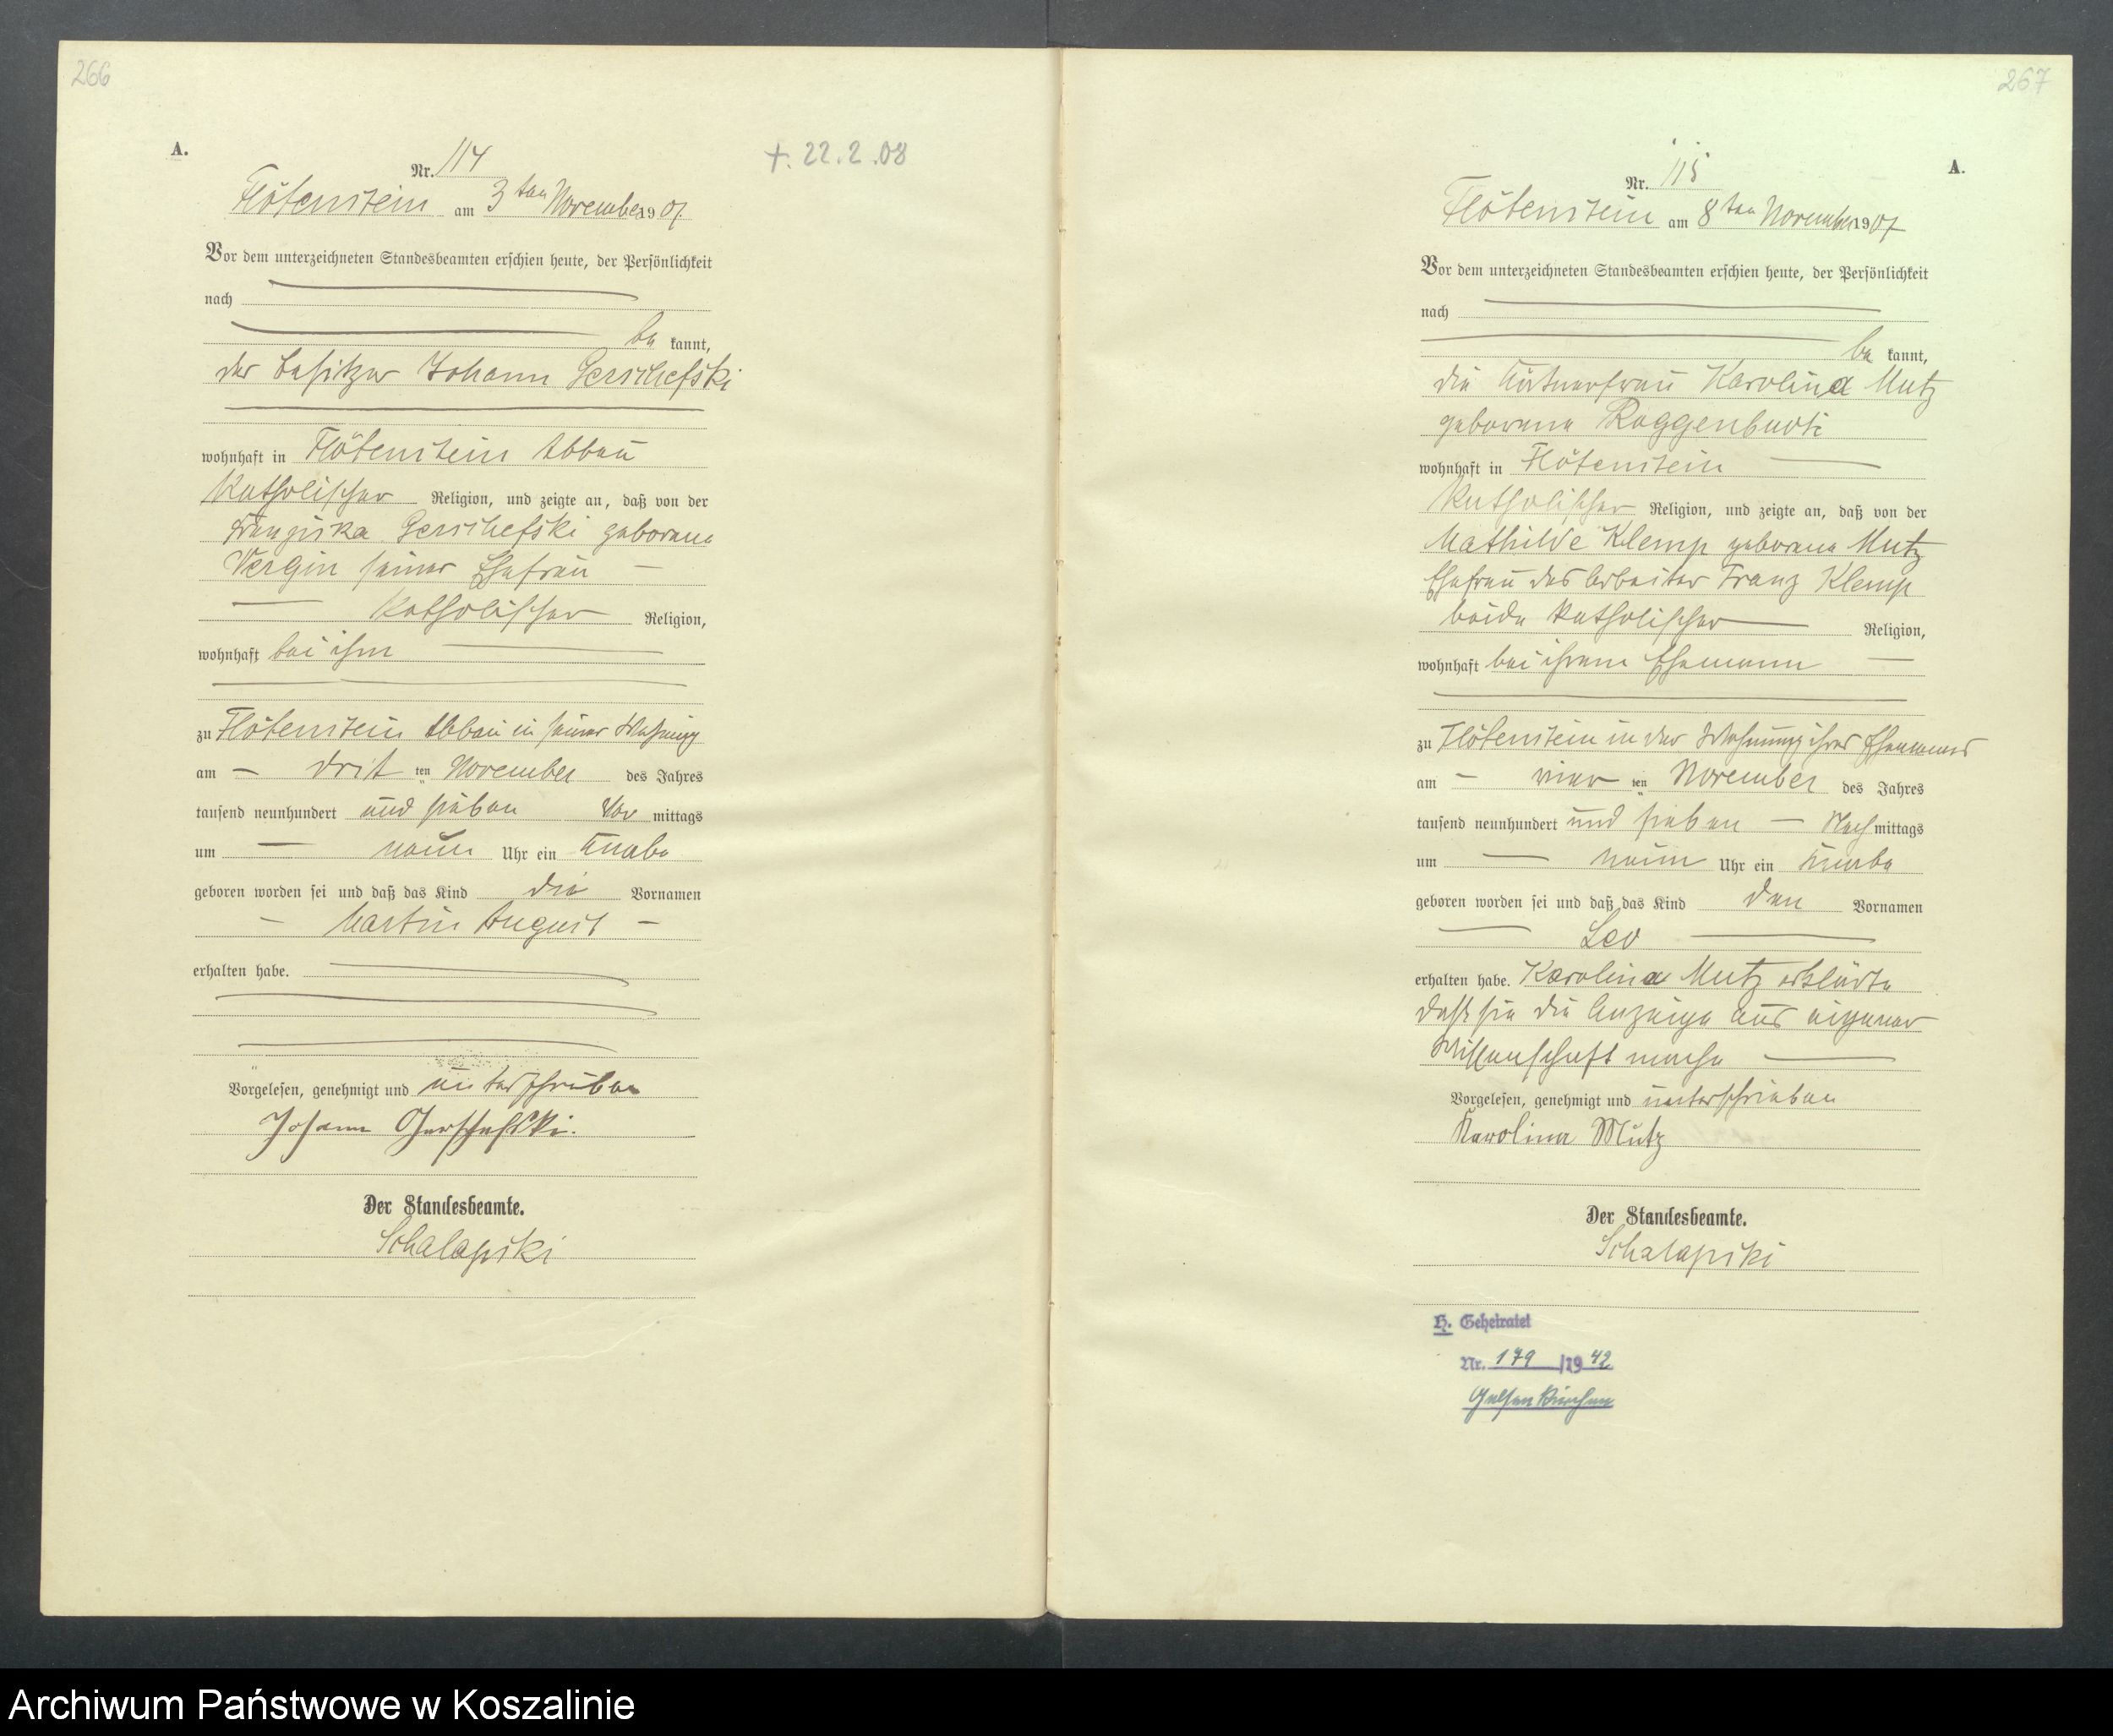 266
A.
Nr. 114
+. 22.2.08
Flötenstein am 3ten November 1907.
Vor dem unterzeichneten Standesbeamten erschien heute, der Persönlichkeit
nach
be kannt,
der Besitzer Johann Gerschefski
wohnhaft in Flötenstein Abbau
katholischer Religion, und zeigte an, daß von der
Franziska Gerschefski geborene
Vergin seiner Ehefrau
katholischer Religion,
wohnhaft bei ihm
zu Flötenstein Abbau in seiner Wohnung
am dritten November des Jahres
tausend neunhundert und sieben Vor mittags
um neun Uhr ein Knabe
geboren worden sei und daß das Kind die Vornamen
Martin August
erhalten habe.
Vorgelesen, genehmigt und unterschrieben
Johann Gerschefski.
Der Standesbeamte.
Schalapski
267
A.
Nr. 115
Flötenstein am 8ten November 1907
Vor dem unterzeichneten Standesbeamten erschien heute, der Persönlichkeit
nach
be kannt,
die Kätnerfrau Karolina Mutz
geborene Roggenbuck
wohnhaft in Flötenstein
katholischer Religion, und zeigte an, daß von der
Mathilde Klemp geborene Mutz
Ehefrau des Arbeiter Franz Klemp
beide katholischer Religion,
wohnhaft bei ihrem Ehemann
zu Flötenstein in der Wohnung ihres Ehemannes
am vierten November des Jahres
tausend neunhundert und sieben Nach mittags
um neun Uhr ein Knabe
geboren worden sei und daß das Kind den Vornamen
Leo
erhalten habe. Karolina Mutz erklärte
daß sie die Anzeige aus eigener
Wissenschaft mache
Vorgelesen, genehmigt und unterschrieben
Karolina Mutz
Der Standesbeamte.
Schalapski
H. Geheiratet
Nr. 179 /1942
Gelsenkirchen
Archiwum Państwowe w Koszalinie